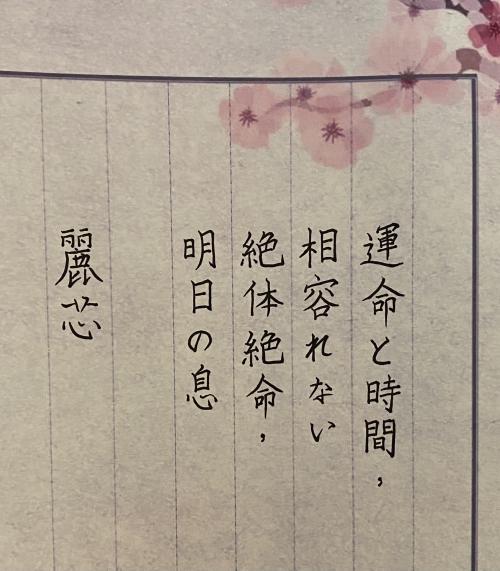 運命と時間，
相容れない
絶体絶命，
明日の息
麗芯